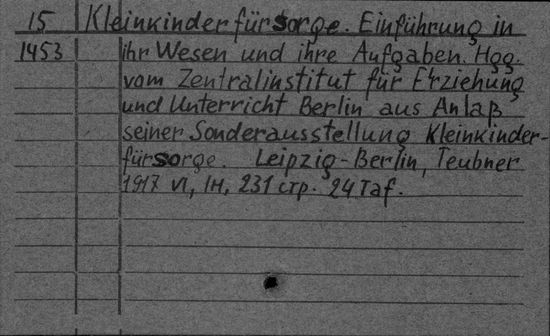 15 Kleinkinderfürsorge. Einführung in
1453 ihr Wesen und ihre Aufgaben. Hgg.
vom Zentralinstitut für Erziehung
und Unterricht Berlin aus Anlaß
seiner Sonderausstellung Kleinkinder-
fürsorge. Leipzig-Berlin, Teubner
1917 VI, 1H, 231 стр. 24 Taf.